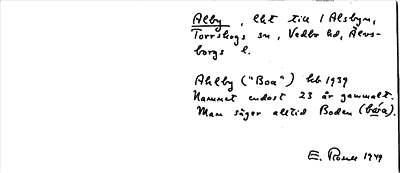 Alby, lht till 1 Alsbyn,
Torrskogs sn, Vedbo hd, Älvs-
borgs l.
Ahlby ("Boa") hb 1939
Namnet endast 23 år gammalt.
Man säger alltid Boden (bóa).
E. 1949